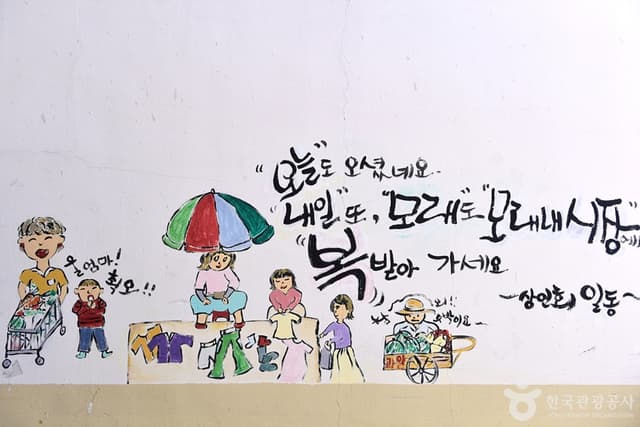 "오늘"도 오셨네요..
"내일"또, "모래"도 "모래내시장"에서
"복"받아 가세요
~상인회 일동~
울엄마!
최고!!
과일
한국관광공사